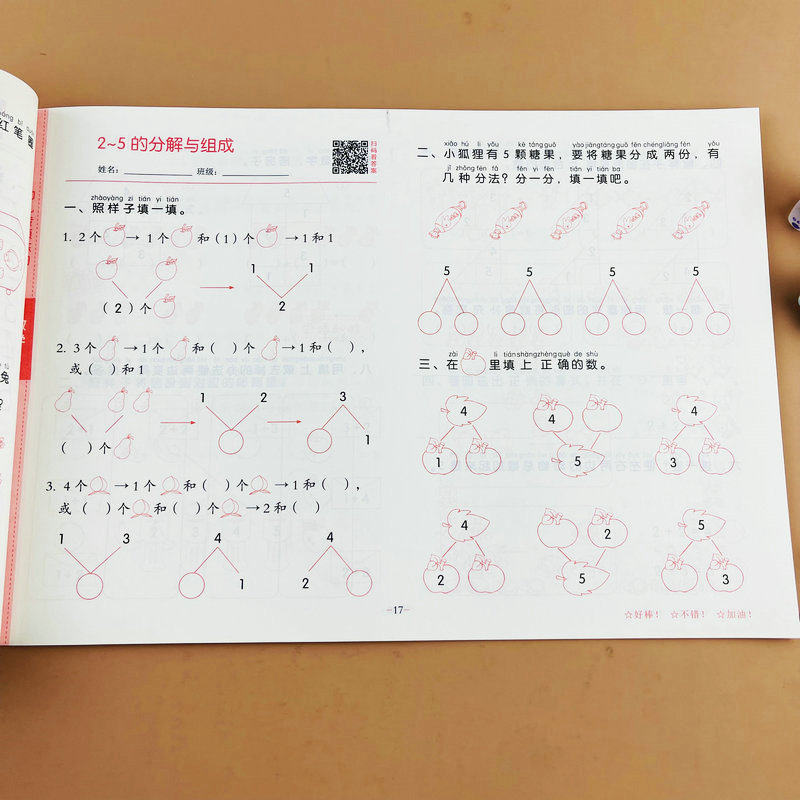 2~5 的分解与组成
扫码看答案
姓名：
班级：
zhàoyàng zi tián yi tián
一、照样子填一填。
1. 2 个 → 1 个 和 (1) 个 → 1 和 1
1 1
( 2 ) 个 → 2
2. 3 个 → 1 个 和 ( ) 个 → 1 和 ( )，
或 ( ) 和 1
1 2 3
( ) 个 → → 1
3. 4 个 → 1 个 和 ( ) 个 → 1 和 ( )，
或 ( ) 个 和 ( ) 个 → 2 和 ( )
1 3 4 4
1 2
xiǎo hú li yǒu kē táng guǒ yào jiāng táng guǒ fēn chéng liǎng fèn yǒu
二、小狐狸有 5 颗糖果，要将糖果分成两份，有
jǐ zhǒng fēn fǎ fēn yi fēn tián yi tián ba
几种分法？分一分，填一填吧。
5 5 5 5
zài lǐ tián shàng zhèng què de shù
三、在 里填上正确的数。
4 4 4
1 5 3
4 2 5
2 5 3
-17-
☆好棒！ ☆不错！ ☆加油！
红笔圈
兔